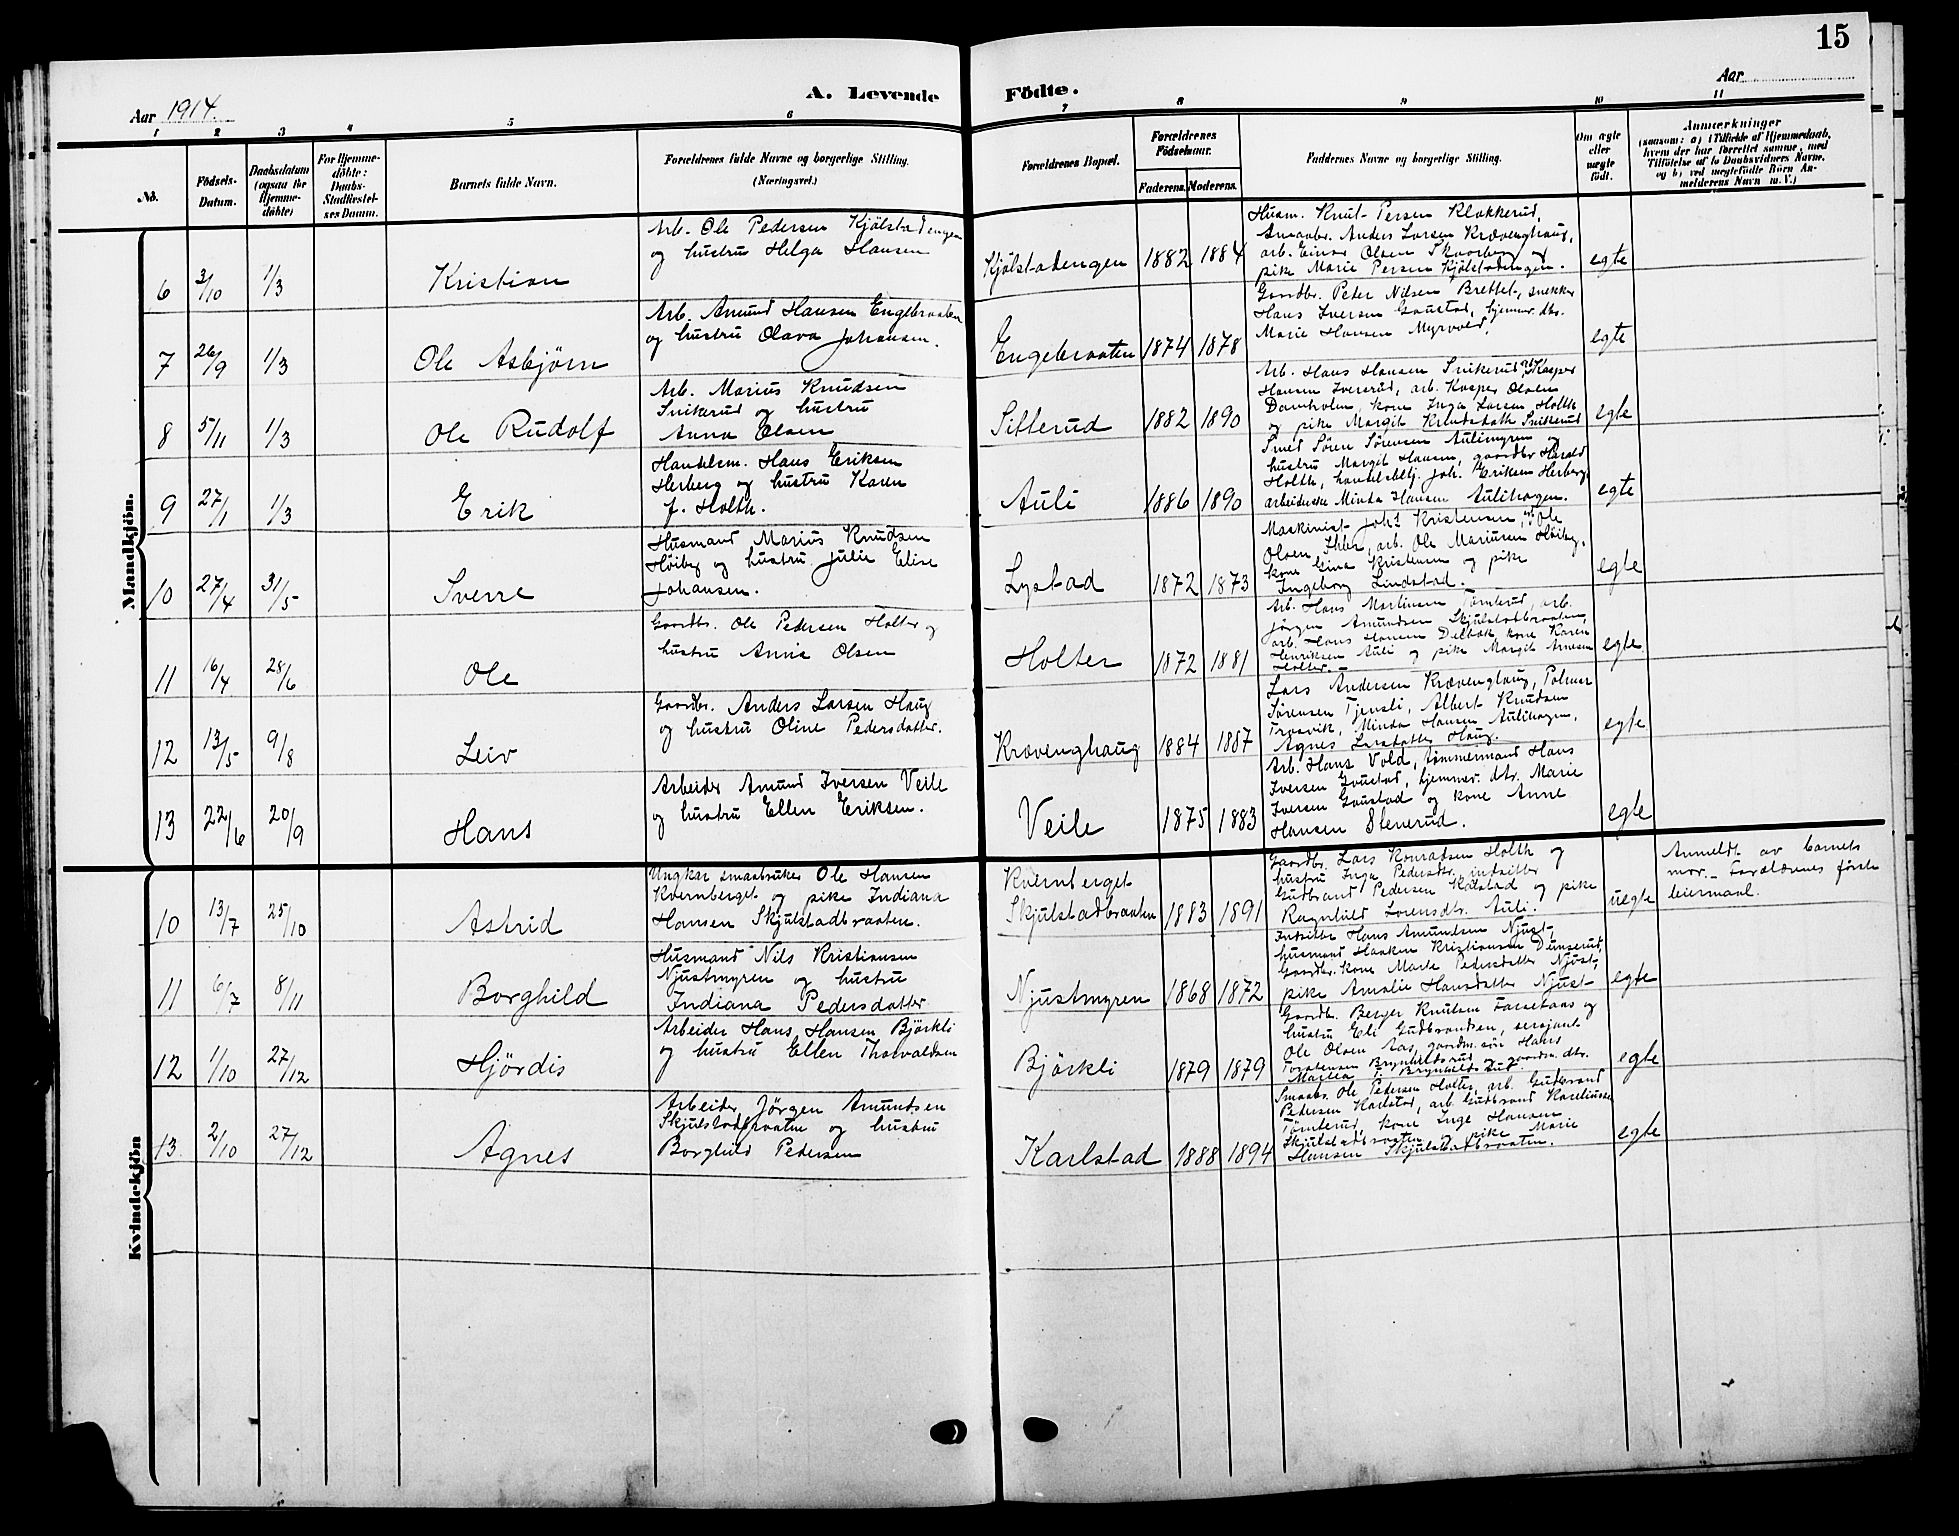 15
Aar 1914.
A. Levende
Födte.
Aar
1 2 3 4 5 6 7 8 9 10 11
No.
Födsels-Datum.
Daabsdatum (ogsaa for Hjemme-döbte)
For Hjemme-döbte: Daabs-Stadfæstel-ses Datum.
Barnets fulde Navn.
Forældrenes fulde Navne og borgerlige Stilling. (Næringsvei.)
Forældrenes Bopæl.
Forældrenes Födselsaar.
Faderens. Moderens.
Faddernes Navne og borgerlige Stilling.
Om ægte eller uægte födt.
Anmærkninger
(saasom: a) i Tilfælde af Hjemmedaab, hvem der har forrettet samme, med Tilföielse af to Daabsvidners Navne, og b) ved uægtefödte Börn An-melderens Navn m. V.)
Mandkjön.
6 3/10 1/3 Kristian
Arb. Ole Pedersen Kjölstadengen
og hustru Helga Hansen
Kjölstadengen 1882 1884
Husm. Knut Persen Klokkerud,
Smaabr. Anders Larsen Krævenghaug,
arb. Einar Olsen Skaarberg og
pike Marie Persen Kjölstadengen.
egte
7 26/9 1/3 Ole Asbjörn
Arb. Amund Hansen Engebraaten
og hustru Olava Johansen.
Engebraaten 1874 1878
Gaardbr. Peter Nilsen Brettet, snekker
Hans Iversen Gaustad, hjemmev. dtr.
Marie Hansen Myrvold.
egte
8 5/11 1/3 Ole Rudolf
Arb. Marius Knudsen
Snikerud og hustru
Anna Olsen
Sitterud 1882 1890
Arb. Hans Hansen Snikerud, arb. Kasper
Hansen Ivererud, arb. Kasper Olsen
Damholen, kone Inga Larsen Holth
og pike Margit Knudsdatter Snikerud
egte
9 27/1 1/3 Erik
Handelsm. Hans Eriksen
Herberg og hustru Karen
f. Holth.
Auli 1886 1890
Smed Sören Sörensen Aulimyren og
hustru Margit Hansen, gaardbr. Harald
Holth, handelsbetj. Joh. Eriksen Herberg,
arbeiderske Minda Hansen Aulihagen.
egte
10 27/4 31/5 Sverre
Husmand Marius Knudsen
Höiberg og hustru Julie Elise
Johansen.
Lystad 1872 1873
Maskinist Johs Kristensen, arb. Ole
Olsen Ihler, arb. Ole Mariusen Höiberg,
kone Gina Kristensen og pike
Ingeborg Lindstad.
egte
11 16/4 28/6 Ole
Gaardbr. Ole Pedersen Holter og
hustru Anna Olsen
Holter 1872 1881
Arb. Hans Martinsen Tömterud, arb.
Jörgen Amundsen Skjulstadbraaten,
arb. Hans Hansen Delbak, kone Karen
Henriksen Auli og pike Margit Arnesen
Holter.
egte
12 13/5 9/8 Leiv
Gaardbr. Anders Larsen Haug
og hustru Oline Pedersdatter.
Krævenghaug 1884 1887
Lars Andersen Krævenghaug, Palmer
Sörensen Tjensli, Albert Knudsen
Trosvik, Minda Hansen Aulihagen,
Agnes Larsdatter Haug.
egte
13 22/6 20/9 Hans
Arbeider Amund Iversen Veile
og hustru Ellen Eriksen.
Veile 1875 1883
Arb. Hans Vold, tömmermand Hans
Iversen Gaustad, hjemmev. dtr. Marie
Iversen Gaustad og kone Anne
Hansen Stenerud.
egte
Kvindekjön
10 13/7 25/10 Astrid
Ungkar smaabruker Ole Hansen
Kvernberget og pike Indiana
Hansen Skjulstadbraaten.
Kvernberget
Skjulstadbraaten 1883 1891
Gaardbr. Lars Konradsen Holth og
hustru Inga Pedersdtr. indsitter
Gudbrand Pedersen Kalstad og pike
Ragnhild Lorensdtr. Auli.
uegte
Anmeldt av barnets
mor. - Forældrenes förste
leiermaal.
11 6/7 8/11 Borghild
Husmand Nils Kristiansen
Njustmyren og hustru
Indiana Pedersdatter
Njustmyren 1868 1872
Indsitter Hans Amundsen Njust,
husmand Haaken Kristiansen Dunserud,
Gaardbr. kone Marte Pedersdatter Njust,
pike Amalie Hansdatter Njust
egte
12 1/10 27/12 Hjördis
Arbeider Hans Hansen Björkli
og hustru Ellen Thorvaldsen
Björkli 1879 1879
Gaardb. Berger Knutsen Farsetaas og
hustru Eli Gudbrandsen, sersjant
Ole Olsen Aas, gaardm. sön Hans
Torstensen Brynhildsrud og gaardm. dtr.
Martea T. Brynhildsrud.
egte
13 2/10 27/12 Agnes
Arbeider Jörgen Amundsen
Skjulstadbraaten og hustru
Borghild Pedersen
Karlstad 1888 1894
Smaabr. Ole Pedersen Holter, arb. Gudbrand
Pedersen Karlstad, arb. Gudbrand Kareliussen
Tömterud, kone Inge Hansen
Skjulstadbraaten og pike Marie
Hansen Skjulstadbraaten.
egte